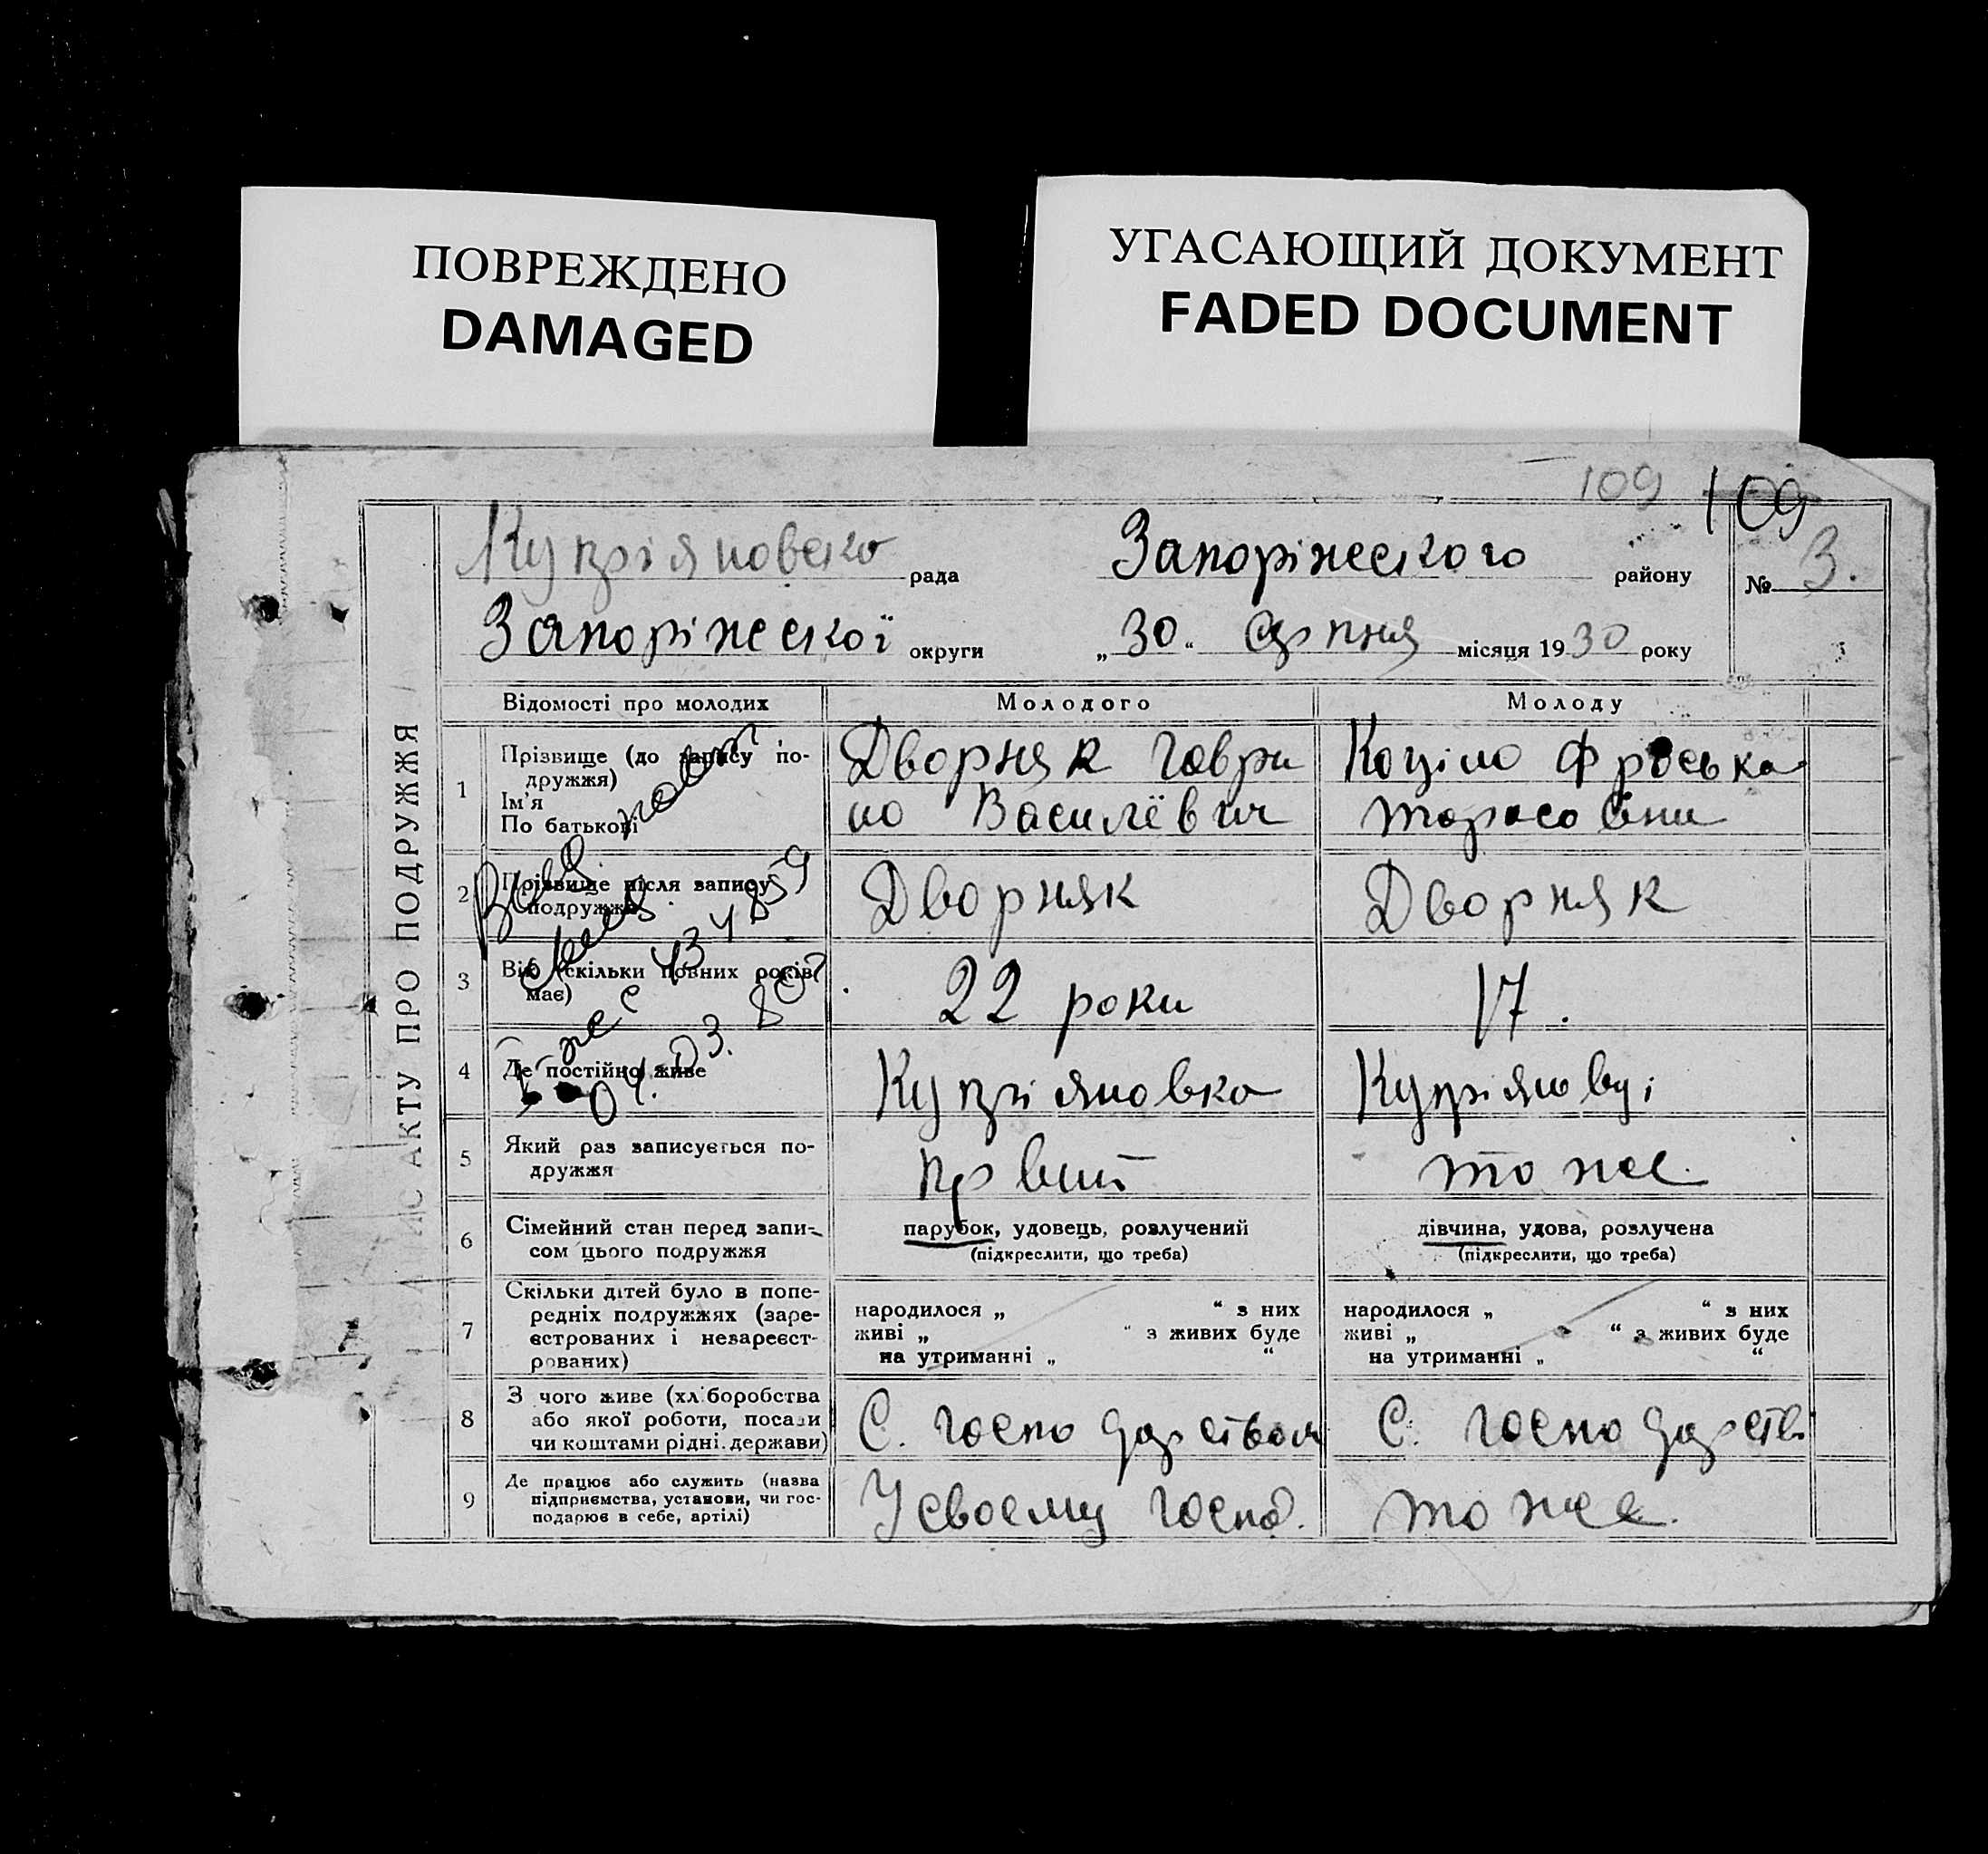 ПОВРЕЖДЕНО
DAMAGED
УГАСАЮЩИЙ ДОКУМЕНТ
FADED DOCUMENT
109 109
Купріяновска рада Запоріжского району № 3.
Запоріжскої округи „30“ Серпня місяця 1930 року
АКТУ ПРО ПОДРУЖЖЯ
Відомості про молодих Молодого Молоду
1 Прізвище (до запису по-
дружжя)
Ім'я
По батькові
Дворняк Гаври
ло Василёвич
Коціло Фроська
Тарасовни
2 Прізвище після запису
подружжя
Дворняк Дворняк
43 4859
3 Вік (скільки повних років
має)
22 роки 17.
4 Де постійно живе
Купріяновка Купріяновці
5 Який раз записується по-
дружжя
первий тоже.
6 Сімейний стан перед запи-
сом цього подружжя
парубок, удовець, розлучений
(підкреслити, що треба)
дівчина, удова, розлучена
(підкреслити, що треба)
7 Скільки дітей було в попе-
редніх подружжях (заре-
єстрованих і незареєст-
рованих)
народилося „ “ з них
живі „ “ з живих буде
на утриманні „ “
народилося „ “ з них
живі „ “ з живих буде
на утриманні „ “
8 З чого живе (хліборобства
або якої роботи, посади
чи коштами рідні. держави)
С. господарством С. господарств
9 Де працює або служить (назва
підприємства, установи, чи гос-
подарює в себе, артілі)
У своєму госпо. тоже.